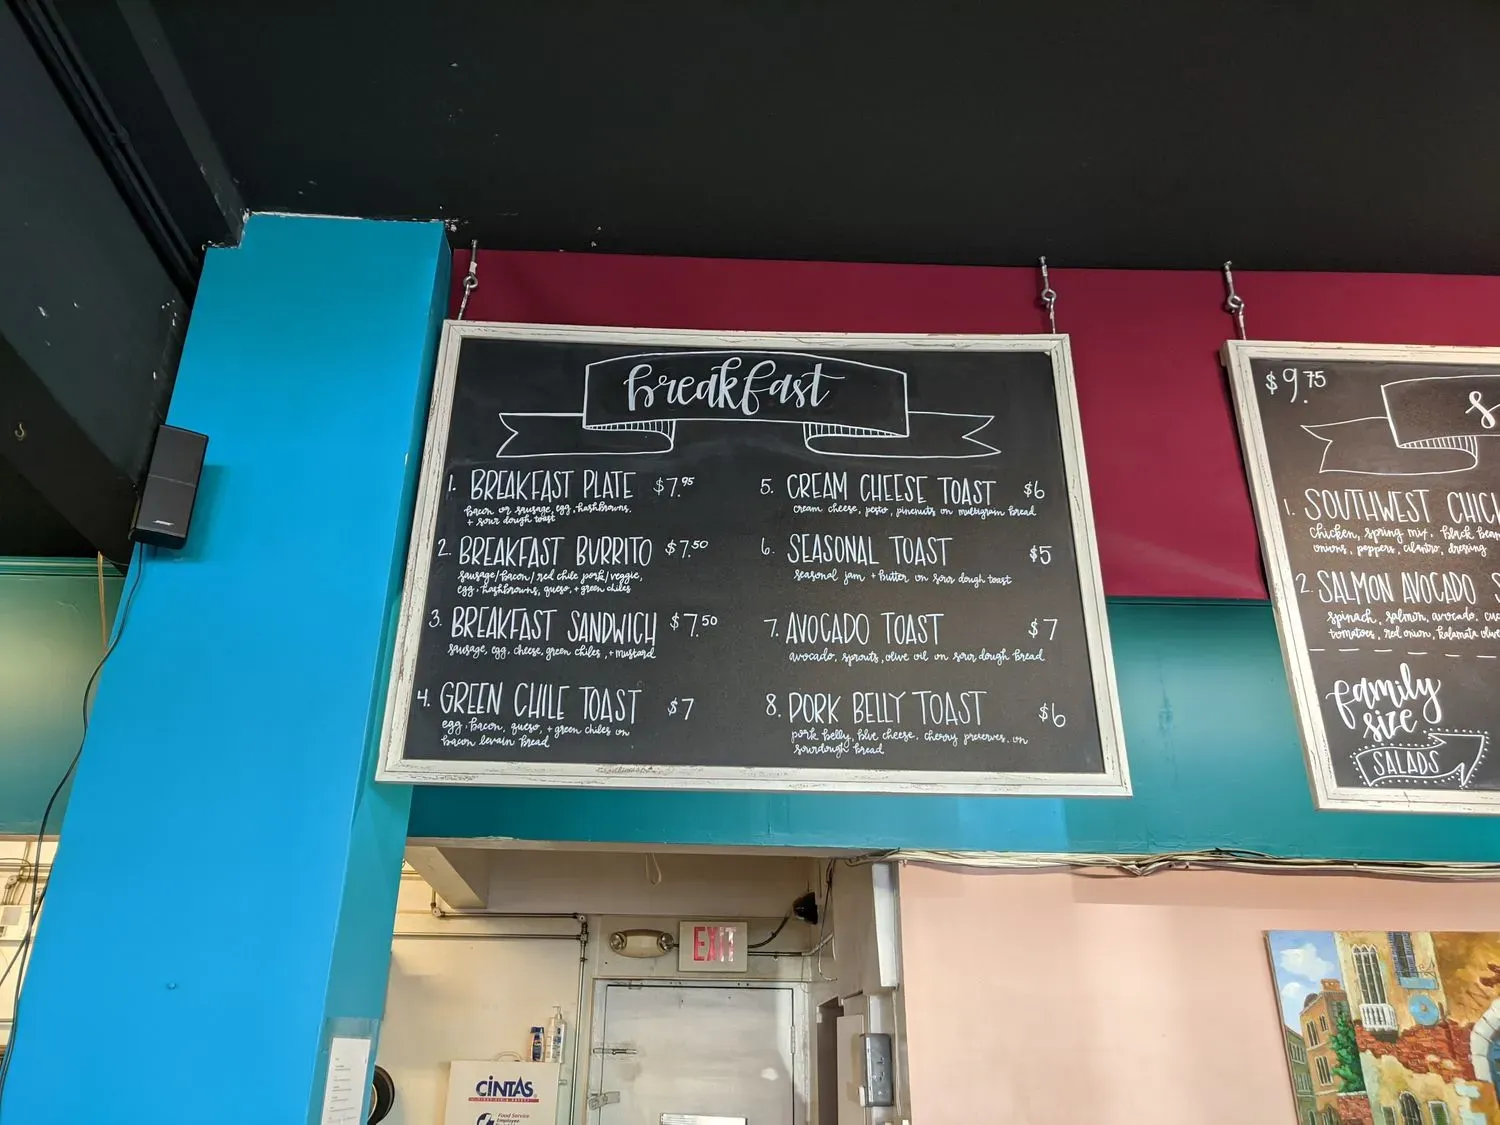 breakfast
1. BREAKFAST PLATE $7.95
bacon or sausage, egg, hashbrowns,
+ sour dough toast
2. BREAKFAST BURRITO $7.50
sausage/bacon/red chile pork/veggie,
egg, hashbrowns, queso, + green chiles
3. BREAKFAST SANDWICH $7.50
sausage, egg, cheese, green chiles, + mustard
4. GREEN CHILE TOAST $7
egg, bacon, queso, + green chiles on
bacon levain bread
5. CREAM CHEESE TOAST $6
cream cheese, pesto, pinenuts on multigrain bread
6. SEASONAL TOAST $5
seasonal jam + butter on sour dough toast
7. AVOCADO TOAST $7
avocado, sprouts, olive oil on sour dough bread
8. PORK BELLY TOAST $6
pork belly, blue cheese, cherry preserves, on
sourdough bread
$9.75
1. SOUTHWEST CHIC
chicken, spring mix, black bean
onions, peppers, cilantro, dressing
2. SALMON AVOCADO S
spinach, salmon, avocado, cuc
tomatoes, red onion, kalamata olive
family
size
SALADS
EXIT
CINTAS
FIRST AID & SAFETY
Food Service
Employee
BOSE